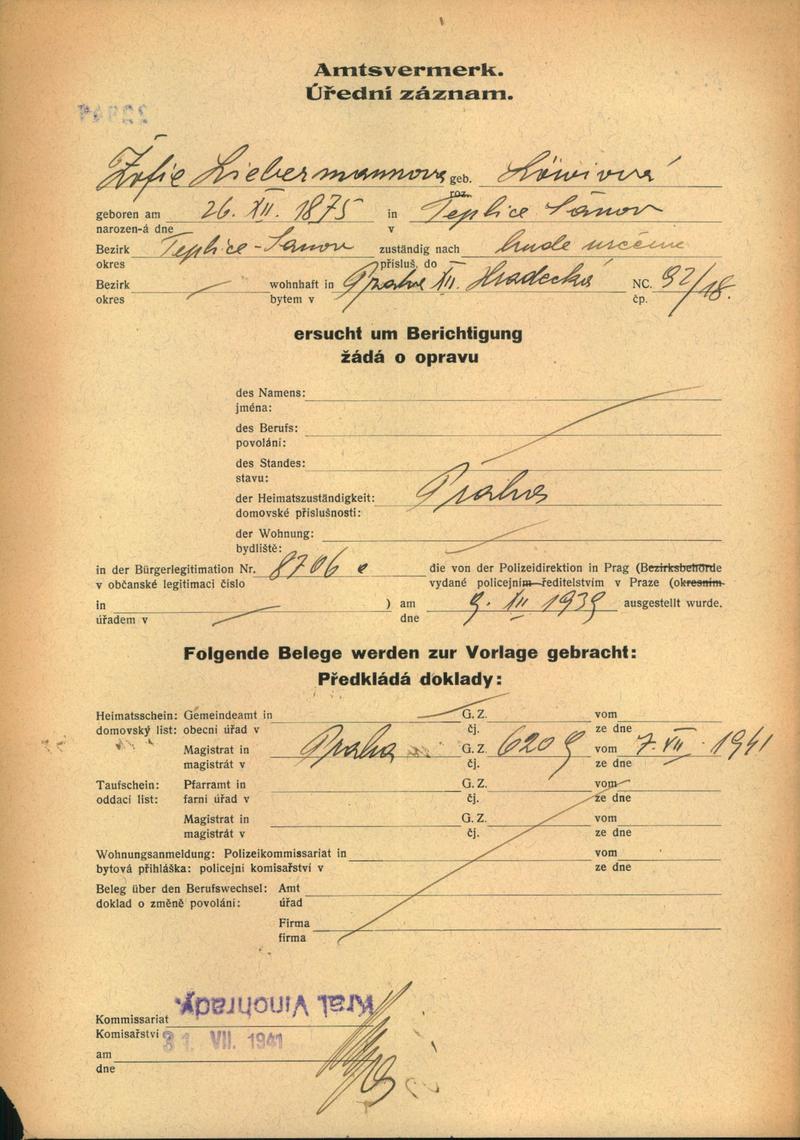 Amtsvermerk.
Úřední záznam.
Žofie Liebermannova geb. Löwiová
roz.
geboren am 26. XII. 1875 in Teplice Šanov
narozen-á dne v
Bezirk Teplice-Šanov zuständig nach bude určeno
okres přísluš. do
Bezirk wohnhaft in Praha XII. Hradecká NC. 92/18.
okres bytem v čp.
ersucht um Berichtigung
žádá o opravu
des Namens:
jména:
des Berufs:
povolání:
des Standes:
stavu:
der Heimatszuständigkeit: Praha
domovské příslušnosti:
der Wohnung:
bydliště:
in der Bürgerlegitimation Nr. 8706 die von der Polizeidirektion in Prag (Bezirksbehörde
v občanské legitimaci číslo vydané policejním ředitelstvím v Praze (okresním
in ) am 9. XII 1939 ausgestellt wurde.
úřadem v dne
Folgende Belege werden zur Vorlage gebracht:
Předkládá doklady:
Heimatsschein: Gemeindeamt in G. Z. vom
domovský list: obecní úřad v čj. ze dne
Magistrat in Praha G. Z. 6209 vom 7. VII. 1941
magistrát v čj. ze dne
Taufschein: Pfarramt in G. Z. vom
oddací list: farní úřad v čj. ze dne
Magistrat in G. Z. vom
magistrát v čj. ze dne
Wohnungsanmeldung: Polizeikommissariat in vom
bytová přihláška: policejní komisařství v ze dne
Beleg über den Berufswechsel: Amt
doklad o změně povolání: úřad
Firma
firma
Kral Vinohrady.
Kommissariat
Komisařství
31. VII. 1941
am
dne